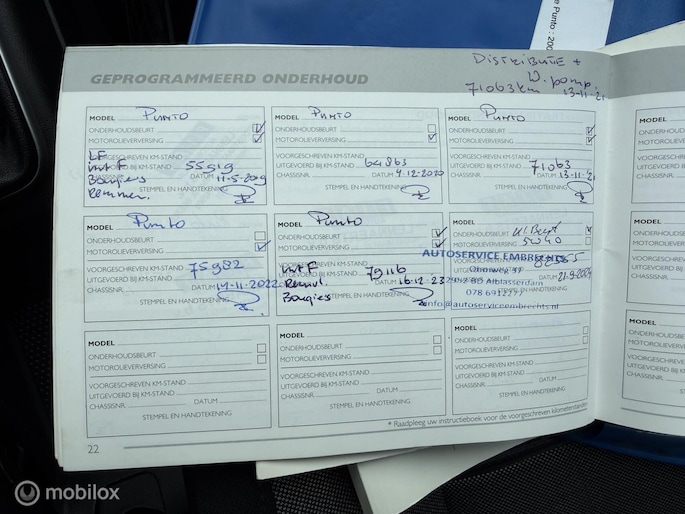 e Punto: 200
DISTRIBUTIE +
W. pomp.
71063 km 13-11-21
GEPROGRAMMEERD ONDERHOUD
MODEL PUNTO
ONDERHOUDSBEURT
MOTOROLIEVERVERSING
LF
VOORGESCHREVEN KM-STAND
Int F UITGEVOERD BIJ KM-STAND 55919
Bougies CHASSISNR. DATUM 11-5-2019
Remmen. STEMPEL EN HANDTEKENING
MODEL PUNTO
ONDERHOUDSBEURT
MOTOROLIEVERVERSING
VOORGESCHREVEN KM-STAND
UITGEVOERD BIJ KM-STAND 64863
CHASSISNR. DATUM 4-12-2020
STEMPEL EN HANDTEKENING
MODEL PUNTO
ONDERHOUDSBEURT
MOTOROLIEVERVERSING
VOORGESCHREVEN KM-STAND
UITGEVOERD BIJ KM-STAND 71063
CHASSISNR. DATUM 13-11-21
STEMPEL EN HANDTEKENING
MODEL PUNTO
ONDERHOUDSBEURT
MOTOROLIEVERVERSING
VOORGESCHREVEN KM-STAND
UITGEVOERD BIJ KM-STAND 75982
CHASSISNR. DATUM 14-11-2022
STEMPEL EN HANDTEKENING
MODEL PUNTO
ONDERHOUDSBEURT
MOTOROLIEVERVERSING
Int F VOORGESCHREVEN KM-STAND
UITGEVOERD BIJ KM-STAND 79116
Bougies CHASSISNR. DATUM 16-12-23
STEMPEL EN HANDTEKENING
MODEL Kl Beurt
ONDERHOUDSBEURT
MOTOROLIEVERVERSING 5W40
AUTOSERVICE EMBRECHTS
VOORGESCHREVEN KM-STAND
UITGEVOERD BIJ KM-STAND
CHASSISNR. DATUM
Alblasserdam
078 6912277
info@autoserviceembrechts.nl
MODEL
ONDERHOUDSBEURT
MOTOROLIEVERVERSING
VOORGESCHREVEN KM-STAND
UITGEVOERD BIJ KM-STAND
CHASSISNR. DATUM
STEMPEL EN HANDTEKENING
MODEL
ONDERHOUDSBEURT
MOTOROLIEVERVERSING
VOORGESCHREVEN KM-STAND
UITGEVOERD BIJ KM-STAND
CHASSISNR. DATUM
STEMPEL EN HANDTEKENING
MODEL
ONDERHOUDSBEURT
MOTOROLIEVERVERSING
VOORGESCHREVEN KM-STAND
UITGEVOERD BIJ KM-STAND
CHASSISNR. DATUM
STEMPEL EN HANDTEKENING
* Raadpleeg uw instructieboek voor de voorgeschreven kilometerstanden
22
MODEL
ONDERH
MOTORO
VOORGES
UITGEVOE
CHASSISN
mobilox